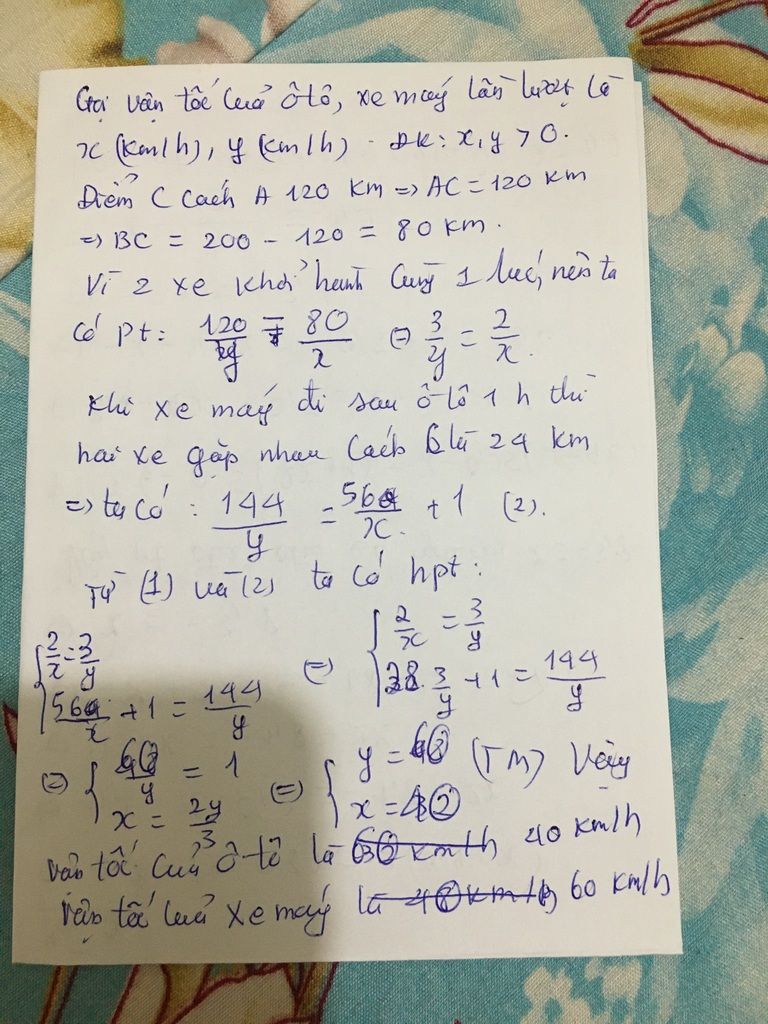 Gọi vận tốc của ô tô, xe máy lần lượt là
x (km/h), y (km/h) . ĐK: x, y > 0.
Điểm C cách A 120 km => AC = 120 km
=> BC = 200 - 120 = 80 km.
Vì 2 xe khởi hành cùng 1 lúc, nên ta
có pt: 120/y = 80/x ⇔ 3/y = 2/x.
Khi xe máy đi sau ô tô 1 h thì
hai xe gặp nhau cách là 24 km
=> ta có : 144/y = 56/x + 1 (2).
Từ (1) và (2) ta có hpt:
{ 2/x = 3/y ; 56/x + 1 = 144/y ⇔ { 2/x = 3/y ; 28 . 3/y + 1 = 144/y
⇔ { 60/y = 1 ; x = 2y/3 ⇔ { y = 60 ; x = 40 (TM) Vậy
vận tốc của ô tô là 40 km/h
vận tốc của xe máy là 60 km/h